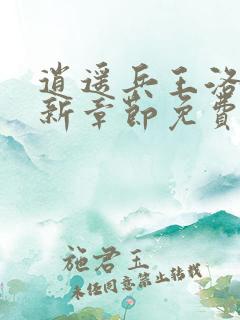 逍遥兵王洛
新章节免费
施君玉
未经同意禁止转载